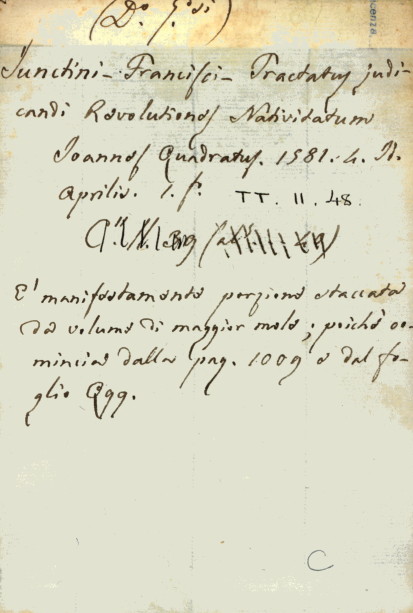 (Do. G.si)
cenza
Junctini – Francisci – Tractatus judi-
candi Revolutiones Nativitatum
Joannes Quadratus. 1581. 4. Id.
Aprilis. 1. f.° TT. II. 48.
E' manifestamente porzione staccata
da volume di maggior mole; poichè co-
mincia dalla pag. 1009 e dal fo-
glio Qqq.
C